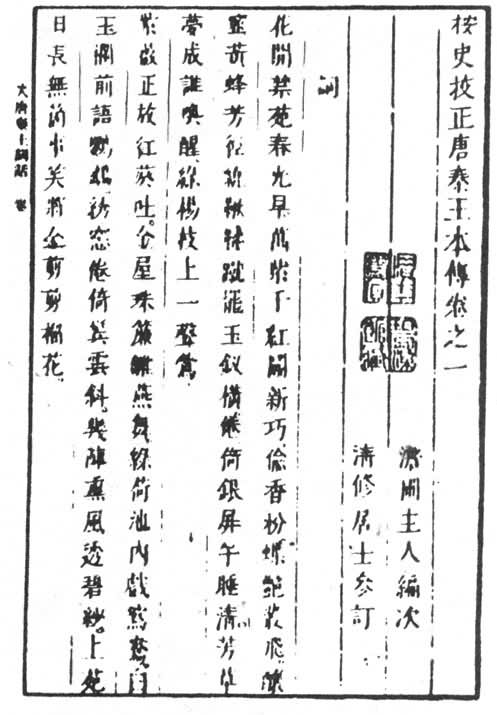 按史挍正唐秦王本傳卷之一
澹圃主人編次
清修居士參訂
詞
花開禁苑春光早萬紫千紅鬭新巧偷香粉蝶叢飛釀
蜜黃蜂芳徑遶鞦韆蹴罷玉釵橫倦倚銀屏午睡清芳草
夢成誰喚醒綠楊枝上一聲鶯
正放紅葵吐金屋珠簾雛燕舞綠荷池內戲鴛鴦白
玉闌前語鸚鵡綉窓倦倚雲斜幾陣薰風透碧紗上苑
日長無箇事笑將金剪剪榴花
大唐秦王詞話 卷